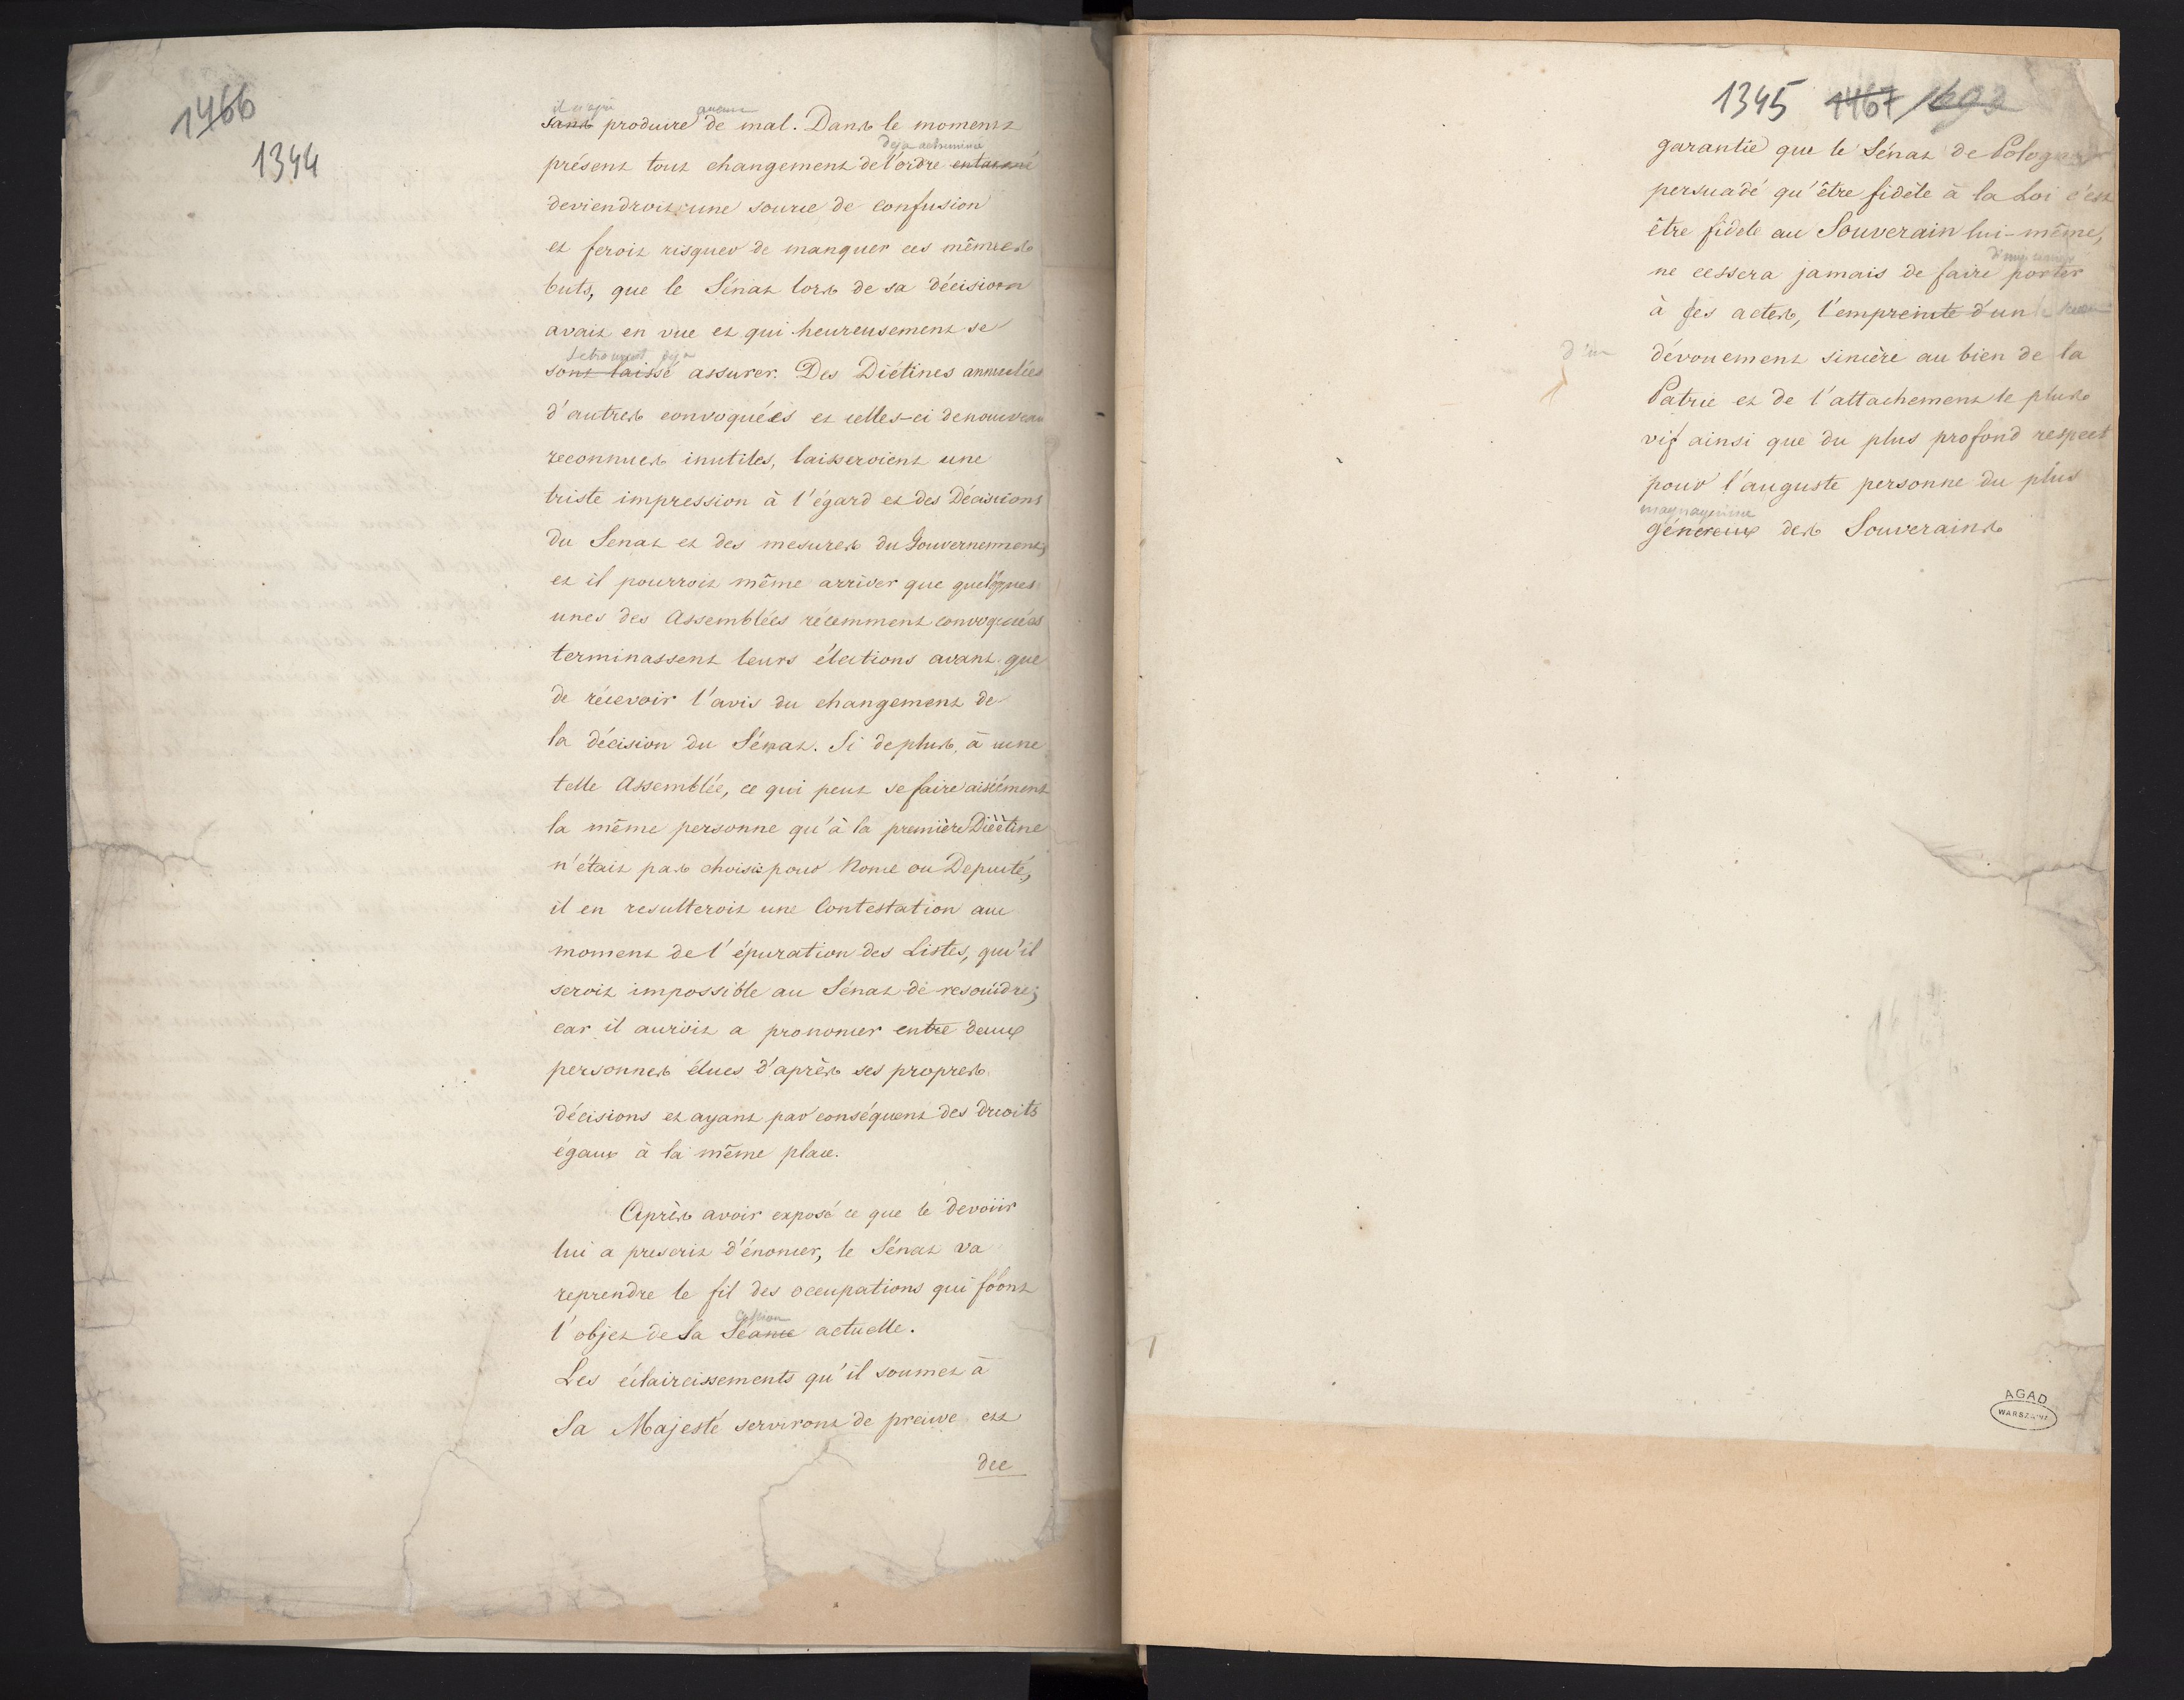 1466
1344
sans produire aucun de mal. Dans le moment
présent tout changement de l'ordre entamé
deviendroit une source de confusion
et feroit risquer de manquer ces mêmes
buts, que le Sénat lors de sa décision
avait en vue et qui heureusement se
se trouvent deja
sont laissé assurer. Des Diétines annulées
d'autres convoquées et celles-ci de nouveau
reconnues inutiles, laisseroient une
triste impression à l'égard et des Décisions
du Senat et des mesures du Gouvernement,
et il pourroit même arriver que quelques
unes des Assemblées récemment convoquées
terminassent leurs élections avant que
de récevoir l'avis du changement de
la décision du Sénat. Si de plus, à une
telle Assemblée, ce qui peut se faire aisément
la même personne qu'à la première Diètine
n'était pas choisie pour Nonce ou Deputé,
il en resulteroit une Contestation au
moment de l'épuration des Listes, qu'il
seroit impossible au Sénat de resoudre;
car il auroit a prononcer entre deux
personnes élues d'après ses propres
décisions et ayant par conséquent des droits
égaux à la même place.
Après avoir exposé ce que le devoir
lui a prescrit d'énoncer, le Sénat va
reprendre le fil des occupations qui font
l'objet de sa Séance actuelle.
Les éclaircissements qu'il soumet à
Sa Majesté serviront de preuve et
de
1345 1467 1692
garantie que le Sénat de Pologne
persuadé qu'être fidèle à la Loi c'est
être fidele au Souverain lui-même,
ne cessera jamais de faire porter
à ses actes, l'empreinte d'un
d'un
dévouement sincère au bien de la
Patrie et de l'attachement le plus
vif ainsi que du plus profond respect
pour l'auguste personne du plus
magnanime
généreux des Souverains
AGAD
WARSZAWA